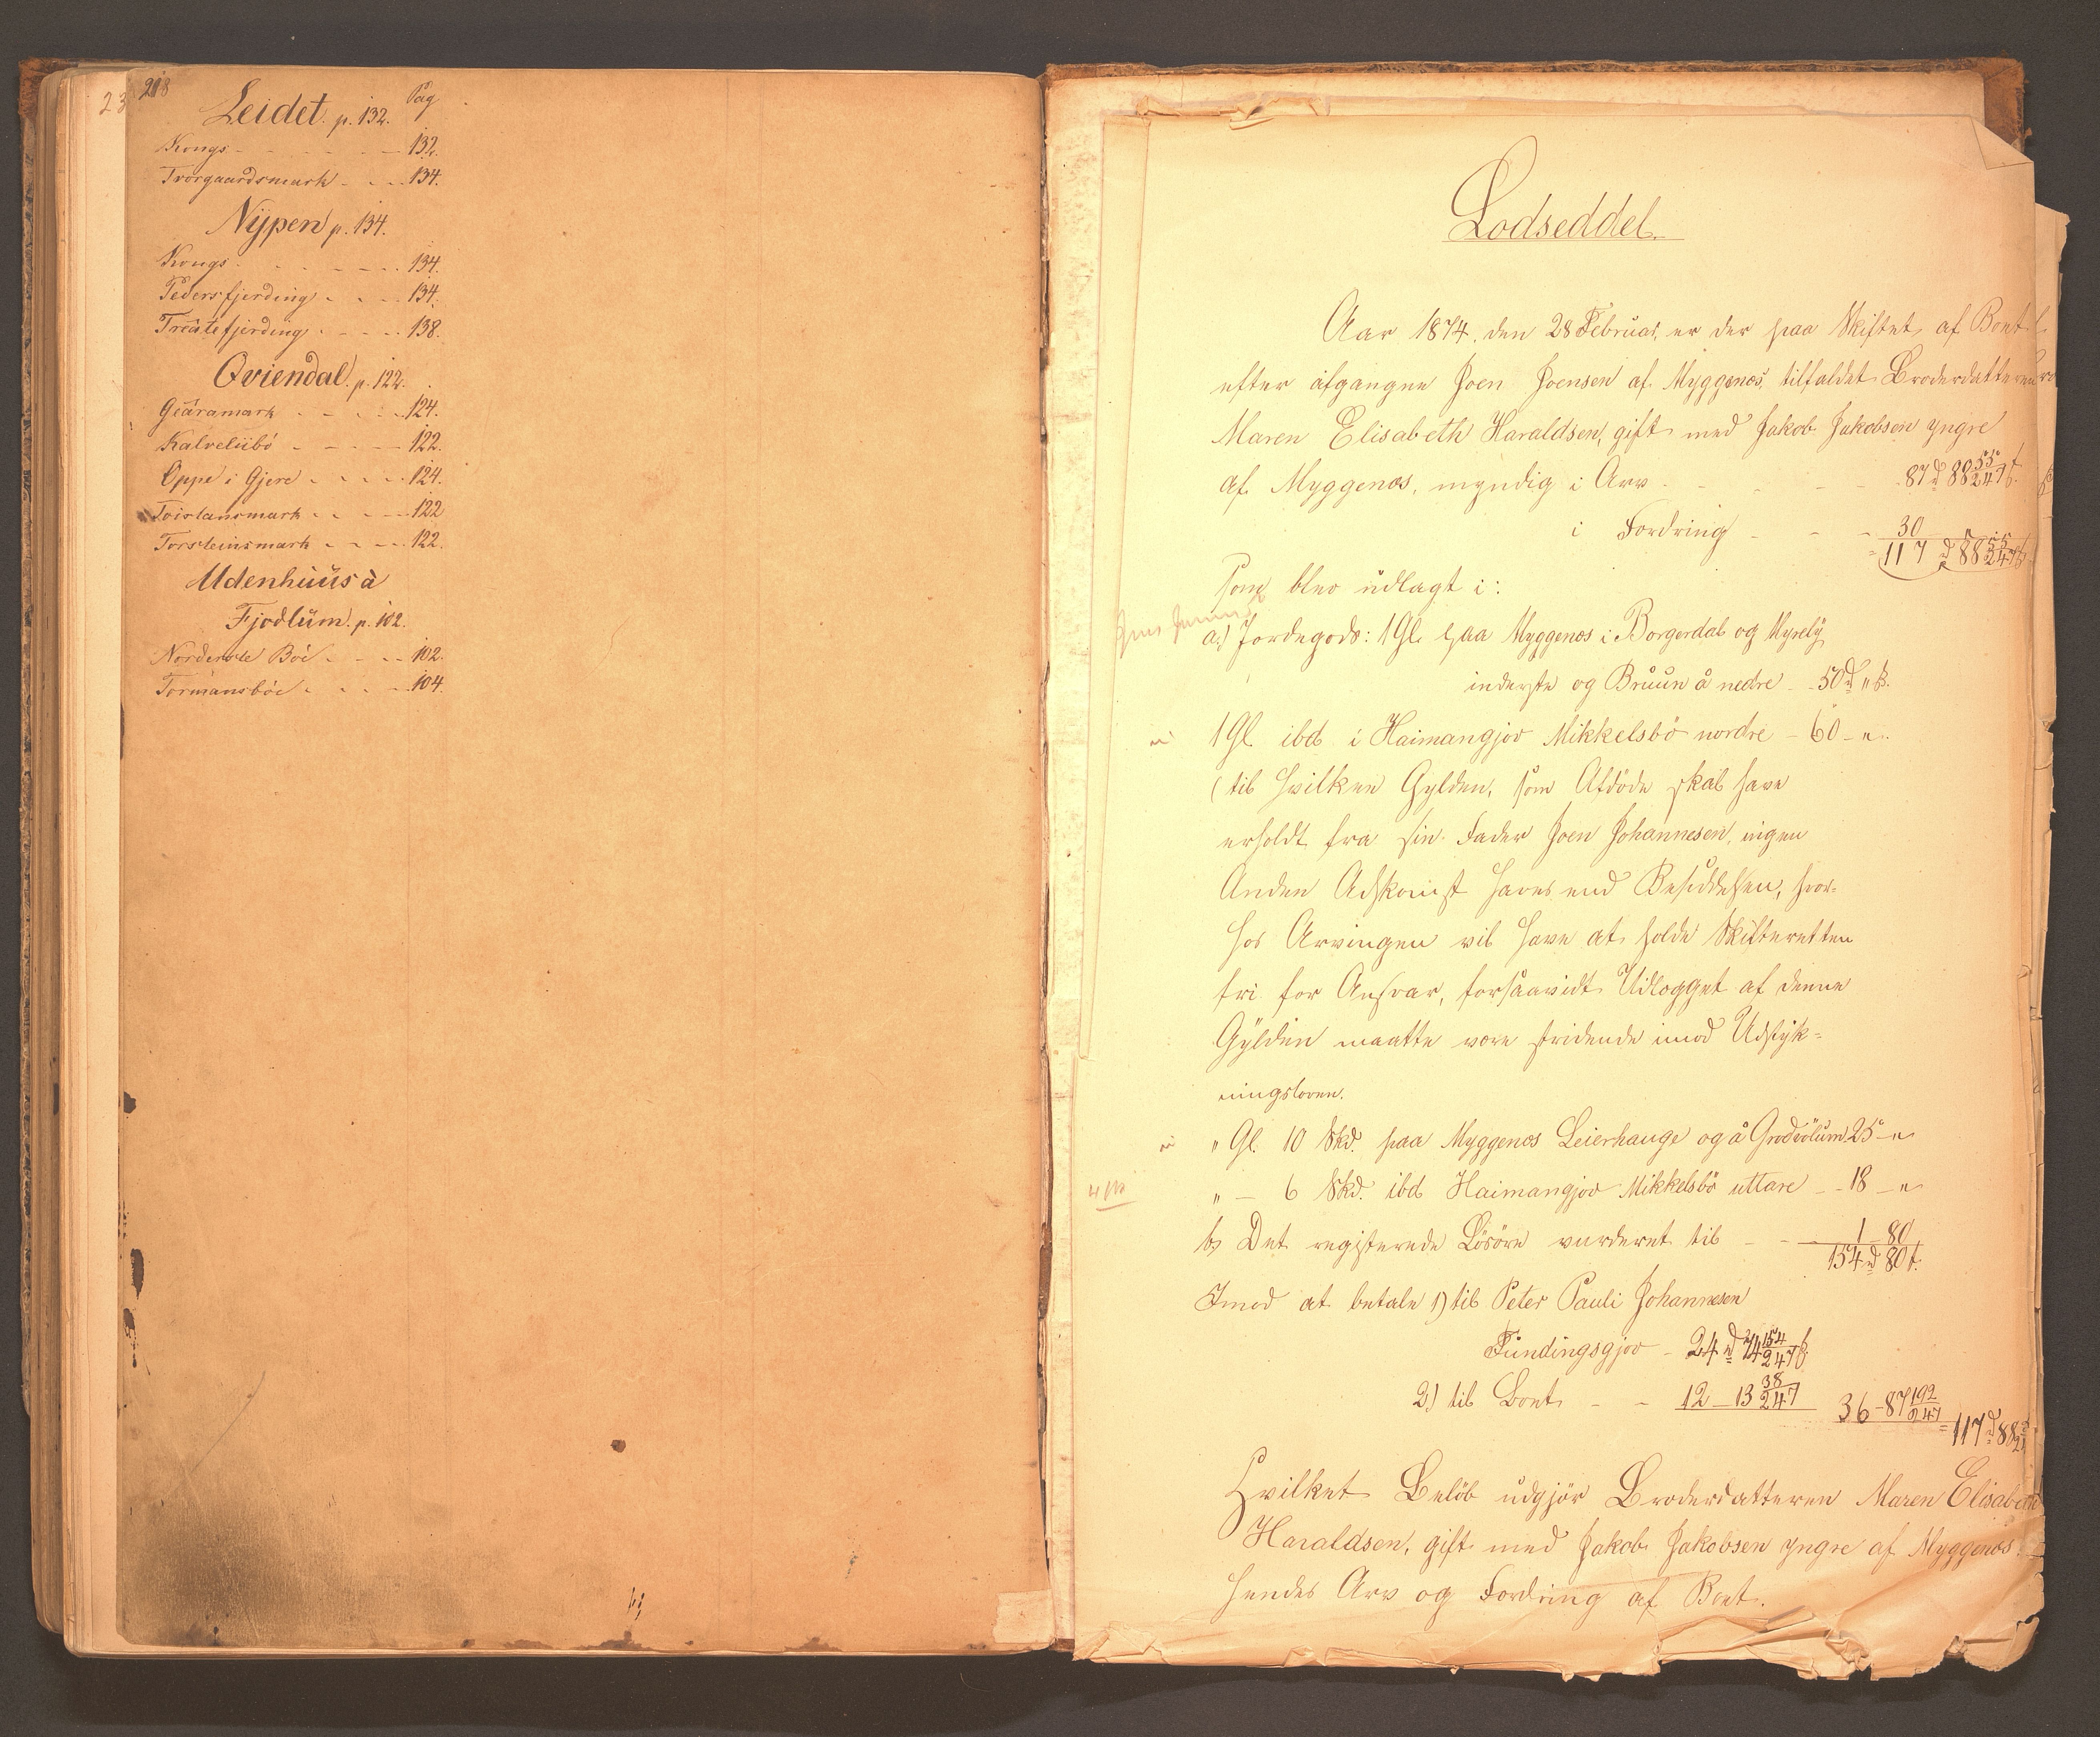 218
Leidet. p. 132. Pag
Kongs - - - - - 132.
Tvørgaardsmark - - - 134.
Nÿpen p. 134.
Kongs - - - - - 134.
Pedersfjerding - - - 134.
Treätefjerding - - - - 138.
Qviendal. p. 122.
Geäramark - - - - 124.
Kalveliibö - - - - 122.
Oppe i Gjere - - - - 124.
Toistansmark - - - - 122
Torsteinsmark - - - - 122.
Udenhuus à
Fjodlum. p. 102.
Norderste Böi - - - 102.
Tormansböi - - - - 104.
Lodseddel.
Aar 1874, den 28 Februar, er der paa Skiftet af Boet
efter afgangne Joen Joensen af Myggenæs, tilfaldet Broderdatteren
Maren Elisabeth Haraldsen, gift med Jakob Jakobsen yngre
af Myggenæs, myndig i Arv - - - 87 d 88 55/247 f.
i Fordring - - - 30
= 117 d 88 55/247 f
Som blev udlagt i:
a.) Jordegods: 1 Gl. paa Myggenæs i Borgerdal og Myrely
inderste og Bruun å nedre - 50 d " f.
1 Gl. ibd. i Haimangjov Mikkelsbö nordre - 60 - "
(til hvilken Gylden, som Afdöde skal have
erholdt fra sin Fader Joen Johannesen, ingen
Anden Adkomst haves end Besiddelsen, hvor-
hos Arvingen vil have at holde Skifteretten
fri for Ansvar, forsaavidt Udlægget af denne
Gylden maatte være stridende imod Udstyk-
ningsloven.
" Gl. 10 Skd. paa Myggenæs Leierhauge og å Grodvölum 25 - "
" - 6 Skd. ibd Haimangjov Mikkelsbö uttare - - 18 - "
b) Det registerede Lösöre vurderet til - - 1 - 80
154 d 80 f.
Imod at betale 1) til Peter Pauli Johannesen
Fundingsgjov - 24 d 74 154/247 f.
2.) til Boet - - 12 - 13 38/247 36 - 87 192/247
= 117 d 88
Hvilket Belöb udgjör Broderdatteren Maren Elisabeth
Haraldsen, gift med Jakob Jakobsen yngre af Myggenæs
hendes Arv og Fordring af Boet.